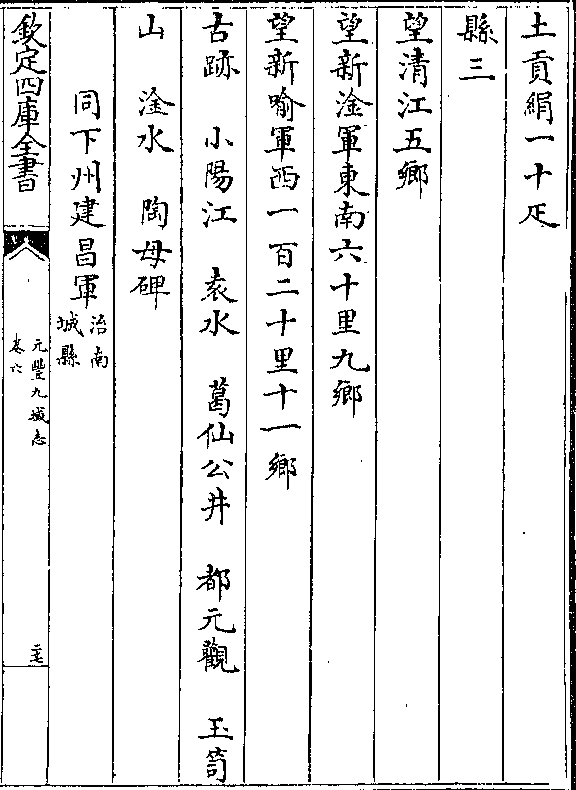 土貢絹一十疋
縣三
望清江五鄉
望新淦軍東南六十里九鄉
望新喻軍西一百二十里十一鄉
古跡　小陽江　袁水　葛仙公井　都元觀　玉笥
山　淦水　陶母碑
同下州建昌軍治南城縣
欽定四庫全書　元豐九域志卷六　二七